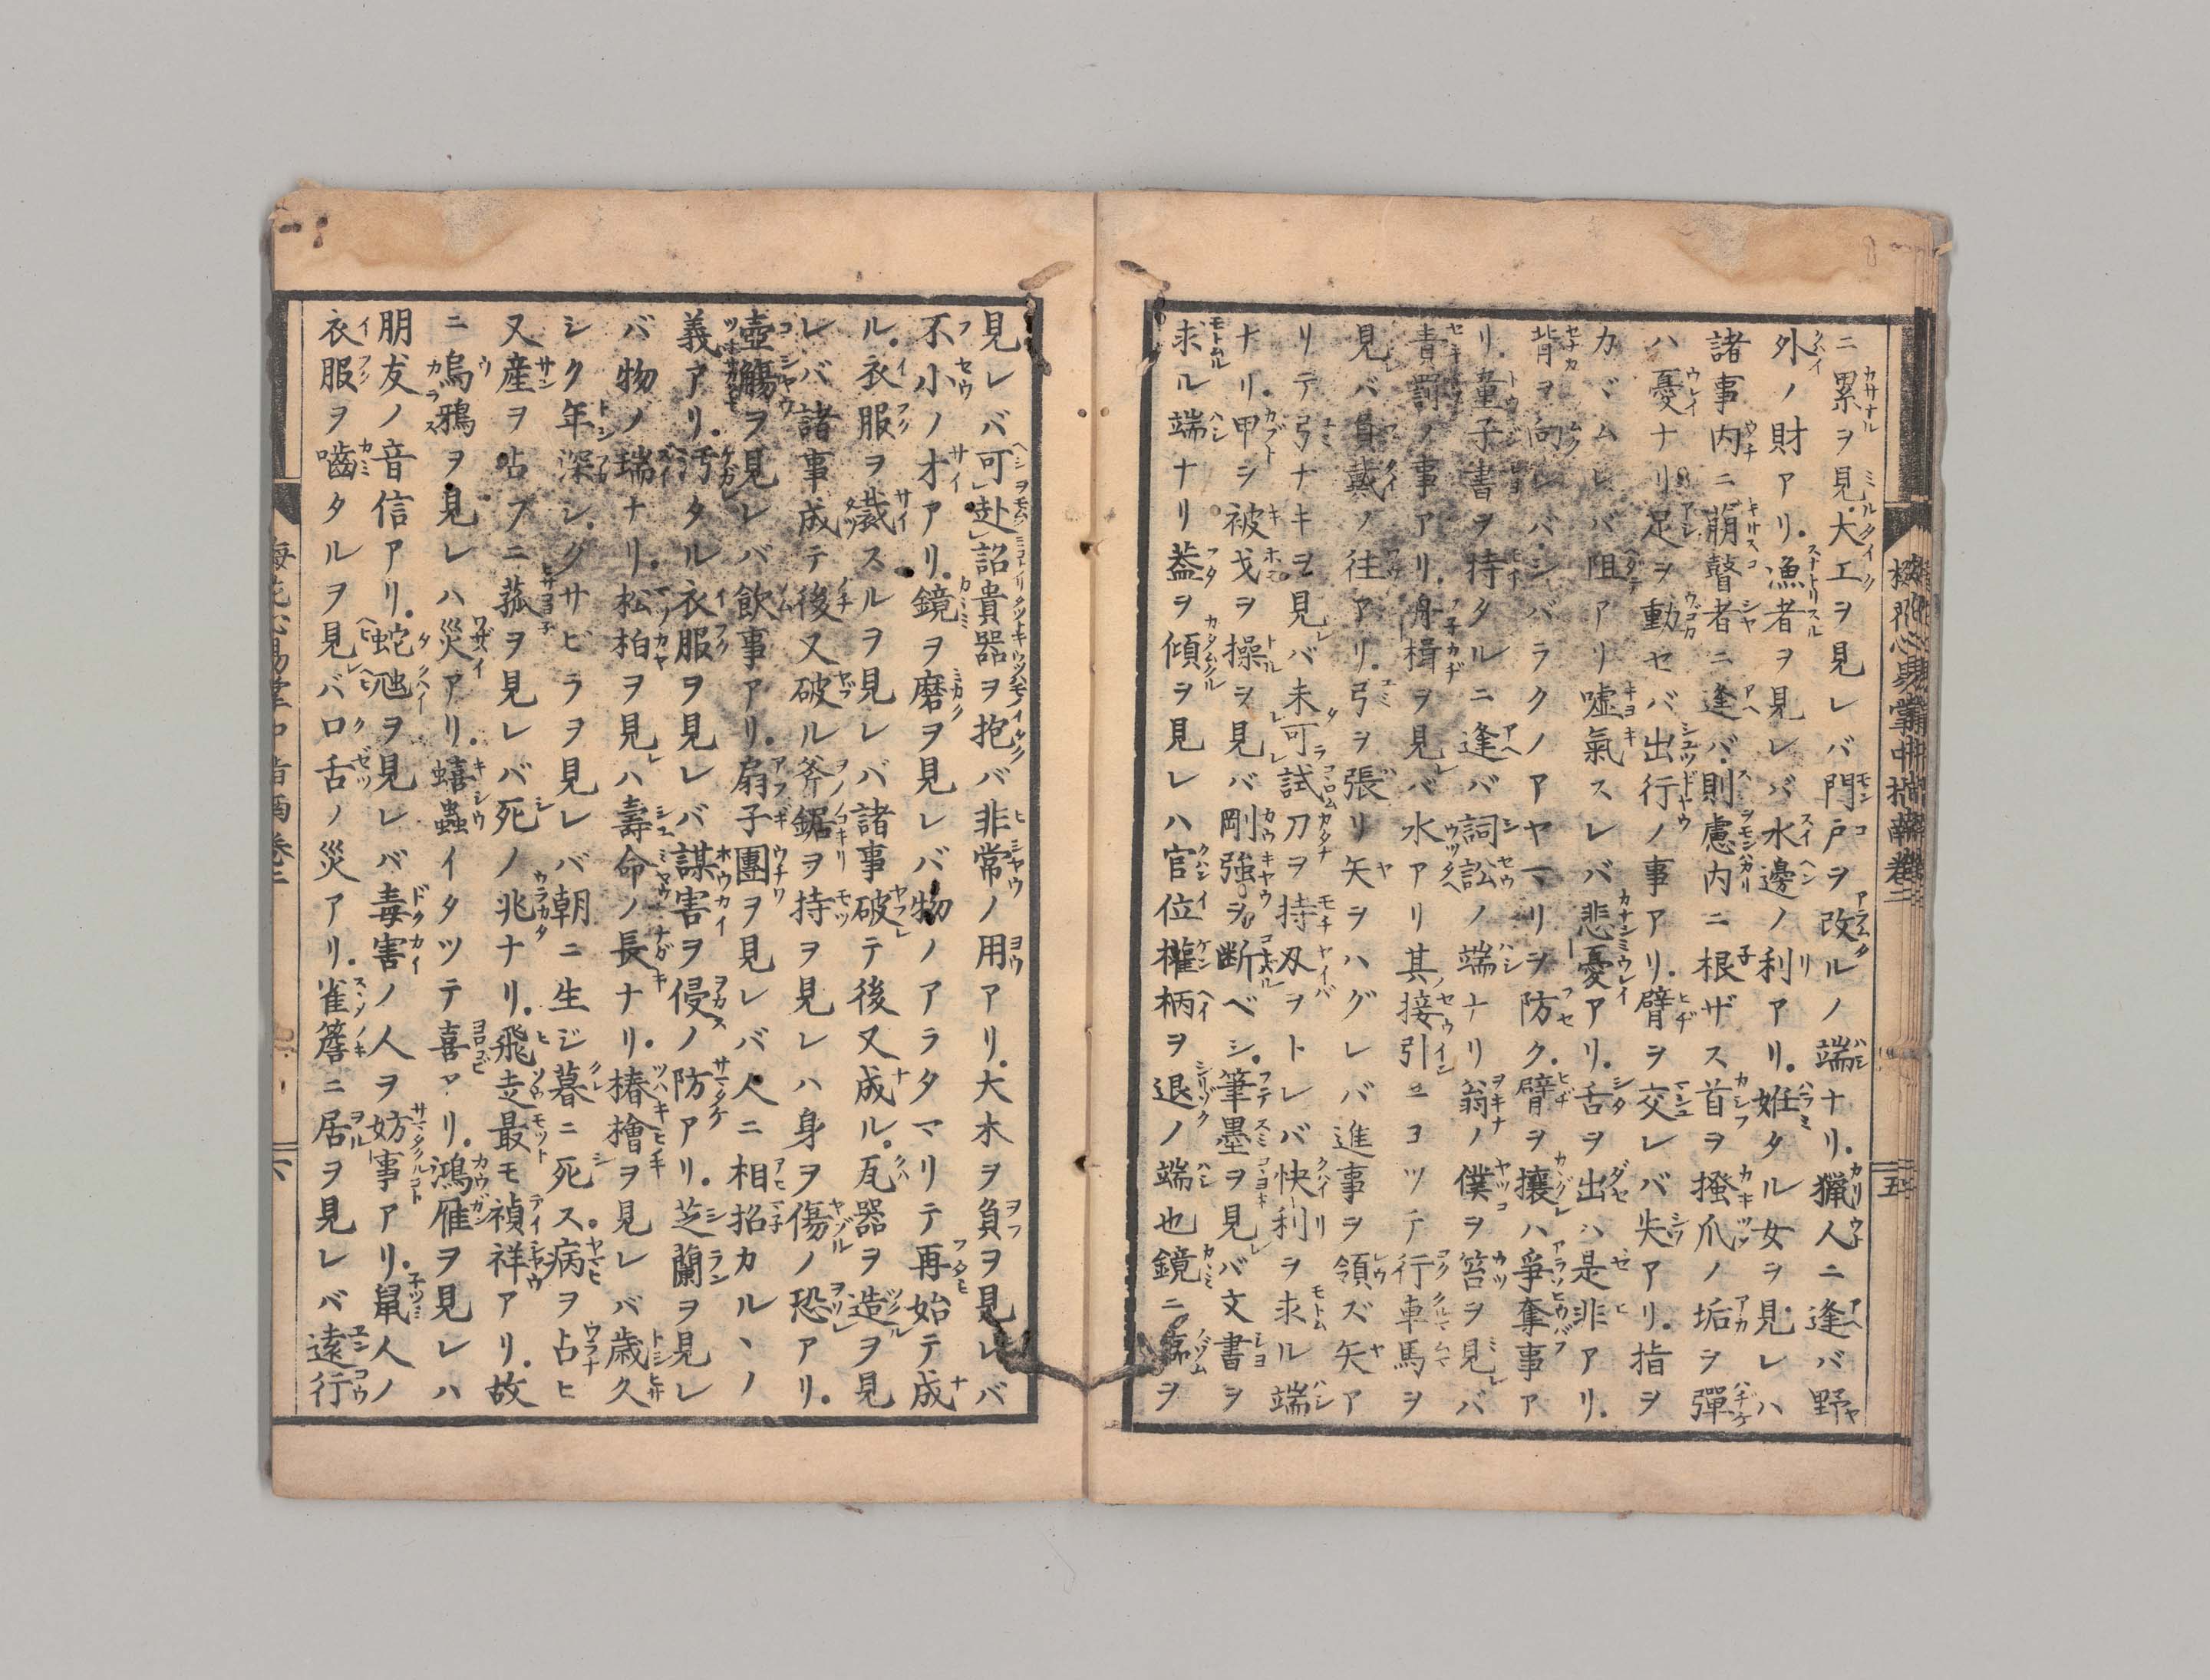 ニ累ヲ見大工ヲ見レバ門戸ヲ改ルノ端ナリ猟人ニ逢バ野
外ノ財アリ漁者ヲ見レバ水邊ノ利アリ姙タル女ヲ見レハ
諸事内ニ萠瞽者ニ逢バ則慮内ニ根ザス首ヲ搔爪ノ垢ヲ彈
ハ憂ナリ足ヲ動セバ出行ノ事アリ臂ヲ交レバ失アリ指ヲ
カヾムレバ阻アリ嘘氣スレバ悲憂アリ舌ヲ出ハ是非アリ
背ヲ向レバシバラクノアヤマリヲ防ク臂ヲ攘ハ爭奪事ア
リ童子書ヲ持タルニ逢バ詞訟ノ端ナリ翁ノ僕ヲ笞ヲ見バ
責罰ノ事アリ舟楫ヲ見バ水アリ其接引ニヨツテ行車馬ヲ
見バ負戴ノ往アリ弓ヲ張リ矢ヲハグレバ進事ヲ領ズ矢ア
リテ弓ナキヲ見バ未可試刀ヲ持刄ヲトレバ快利ヲ求ル端
ナリ甲ヲ被戈ヲ操ヲ見バ剛強ヲ断ベシ筆墨ヲ見バ文書ヲ
求ル端ナリ蓋ヲ傾ヲ見レハ官位權柄ヲ退ノ端也鏡ニ臨ヲ
見レバ可赴詔貴器ヲ抱バ非常ノ用アリ大木ヲ負ヲ見レバ
不小ノオアリ鏡ヲ磨ヲ見レバ物ノアラタマリテ再始テ成
ル衣服ヲ裁スルヲ見レバ諸事破テ後又成ル瓦器ヲ造ヲ見
レバ諸事成テ後又破ル斧鋸ヲ持ヲ見レハ身ヲ傷ノ恐アリ
壺觴ヲ見レバ飲事アリ扇子團ヲ見レバ人ニ相招カルヽノ
義アリ汚タル衣服ヲ見レバ謀害ヲ侵ノ防アリ芝蘭ヲ見レ
バ物ノ瑞ナリ松柏ヲ見レハ壽命ノ長ナリ椿檜ヲ見レバ歳久
シク年深シクサビラヲ見レバ朝ニ生ジ暮ニ死ス病ヲ占ヒ
又産ヲ占フニ菰ヲ見レバ死ノ兆ナリ飛走最モ禎祥アリ故
ニ烏鴉ヲ見レハ災アリ蟢蟲イタツテ喜アリ鴻雁ヲ見レハ
朋友ノ音信アリ蛇虺ヲ見レバ毒害ノ人ヲ妨事アリ鼠人ノ
衣服ヲ嚙タルヲ見バ口舌ノ災アリ雀簷ニ居ヲ見レバ遠行